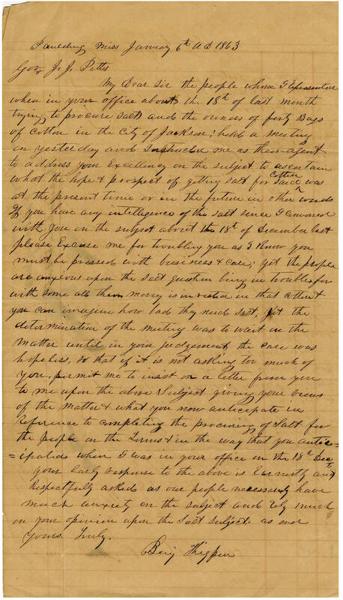 Paulding Miss January 6th AD 1863
Gov J. J. Pettus
My Dear Sir the people whom I represented
when in your office about the 18th of last month
trying to procure salt and the owners of forty Bags
of Cotton in the City of Jackson; held a meeting
on yesterday and Instructed me as their agent
to address your Excellency on the subject to ascertain
what the hope & prospect of getting salt for said Cotton was
at the present time or in the future in other words
If you have any intelligence of the salt since I conversed
with you on the subject about the 18th of December last
please Excuse me for troubling you as I know you
must be pressed with business & care; yet the people
are anxious upon the salt question being in trouble for
with some all their money is invested in that cotton &
you can imagine how bad they need salt, yet the
determination of the meeting was to wait on the
matter until in your judgement the case was
hopeless, so that if it is not asking too much of
you, permit me to insist on a letter from you
to me upon the above subject giving your views
of the matter & what you now anticipate in
reference to completing the procuring of salt for
the people on the terms & in the way that you antic=
=ipated when I was in your office on the 18th Dec
your Early response to the above is Earnestly and
respectfully asked as our people necessarily have
much anxiety on the subject and rely much
on your opinion upon the salt subject as
yours truly
Benj Thigpen